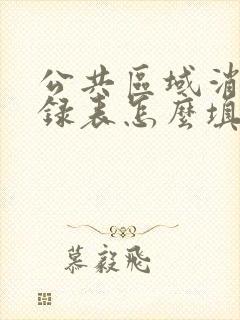 公共區域消
錄表怎麼填
慕毅飛